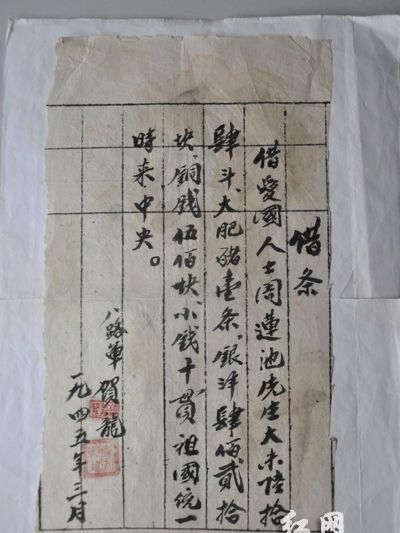 借条
借愛國人士周蓮池先生大米陆拾
肆斗、大肥豬壹条、銀洋肆佰贰拾
块、銅錢伍佰块、小钱十贯祖國統一
時来中央。
八路軍 賀龍
一九四五年三月
红网